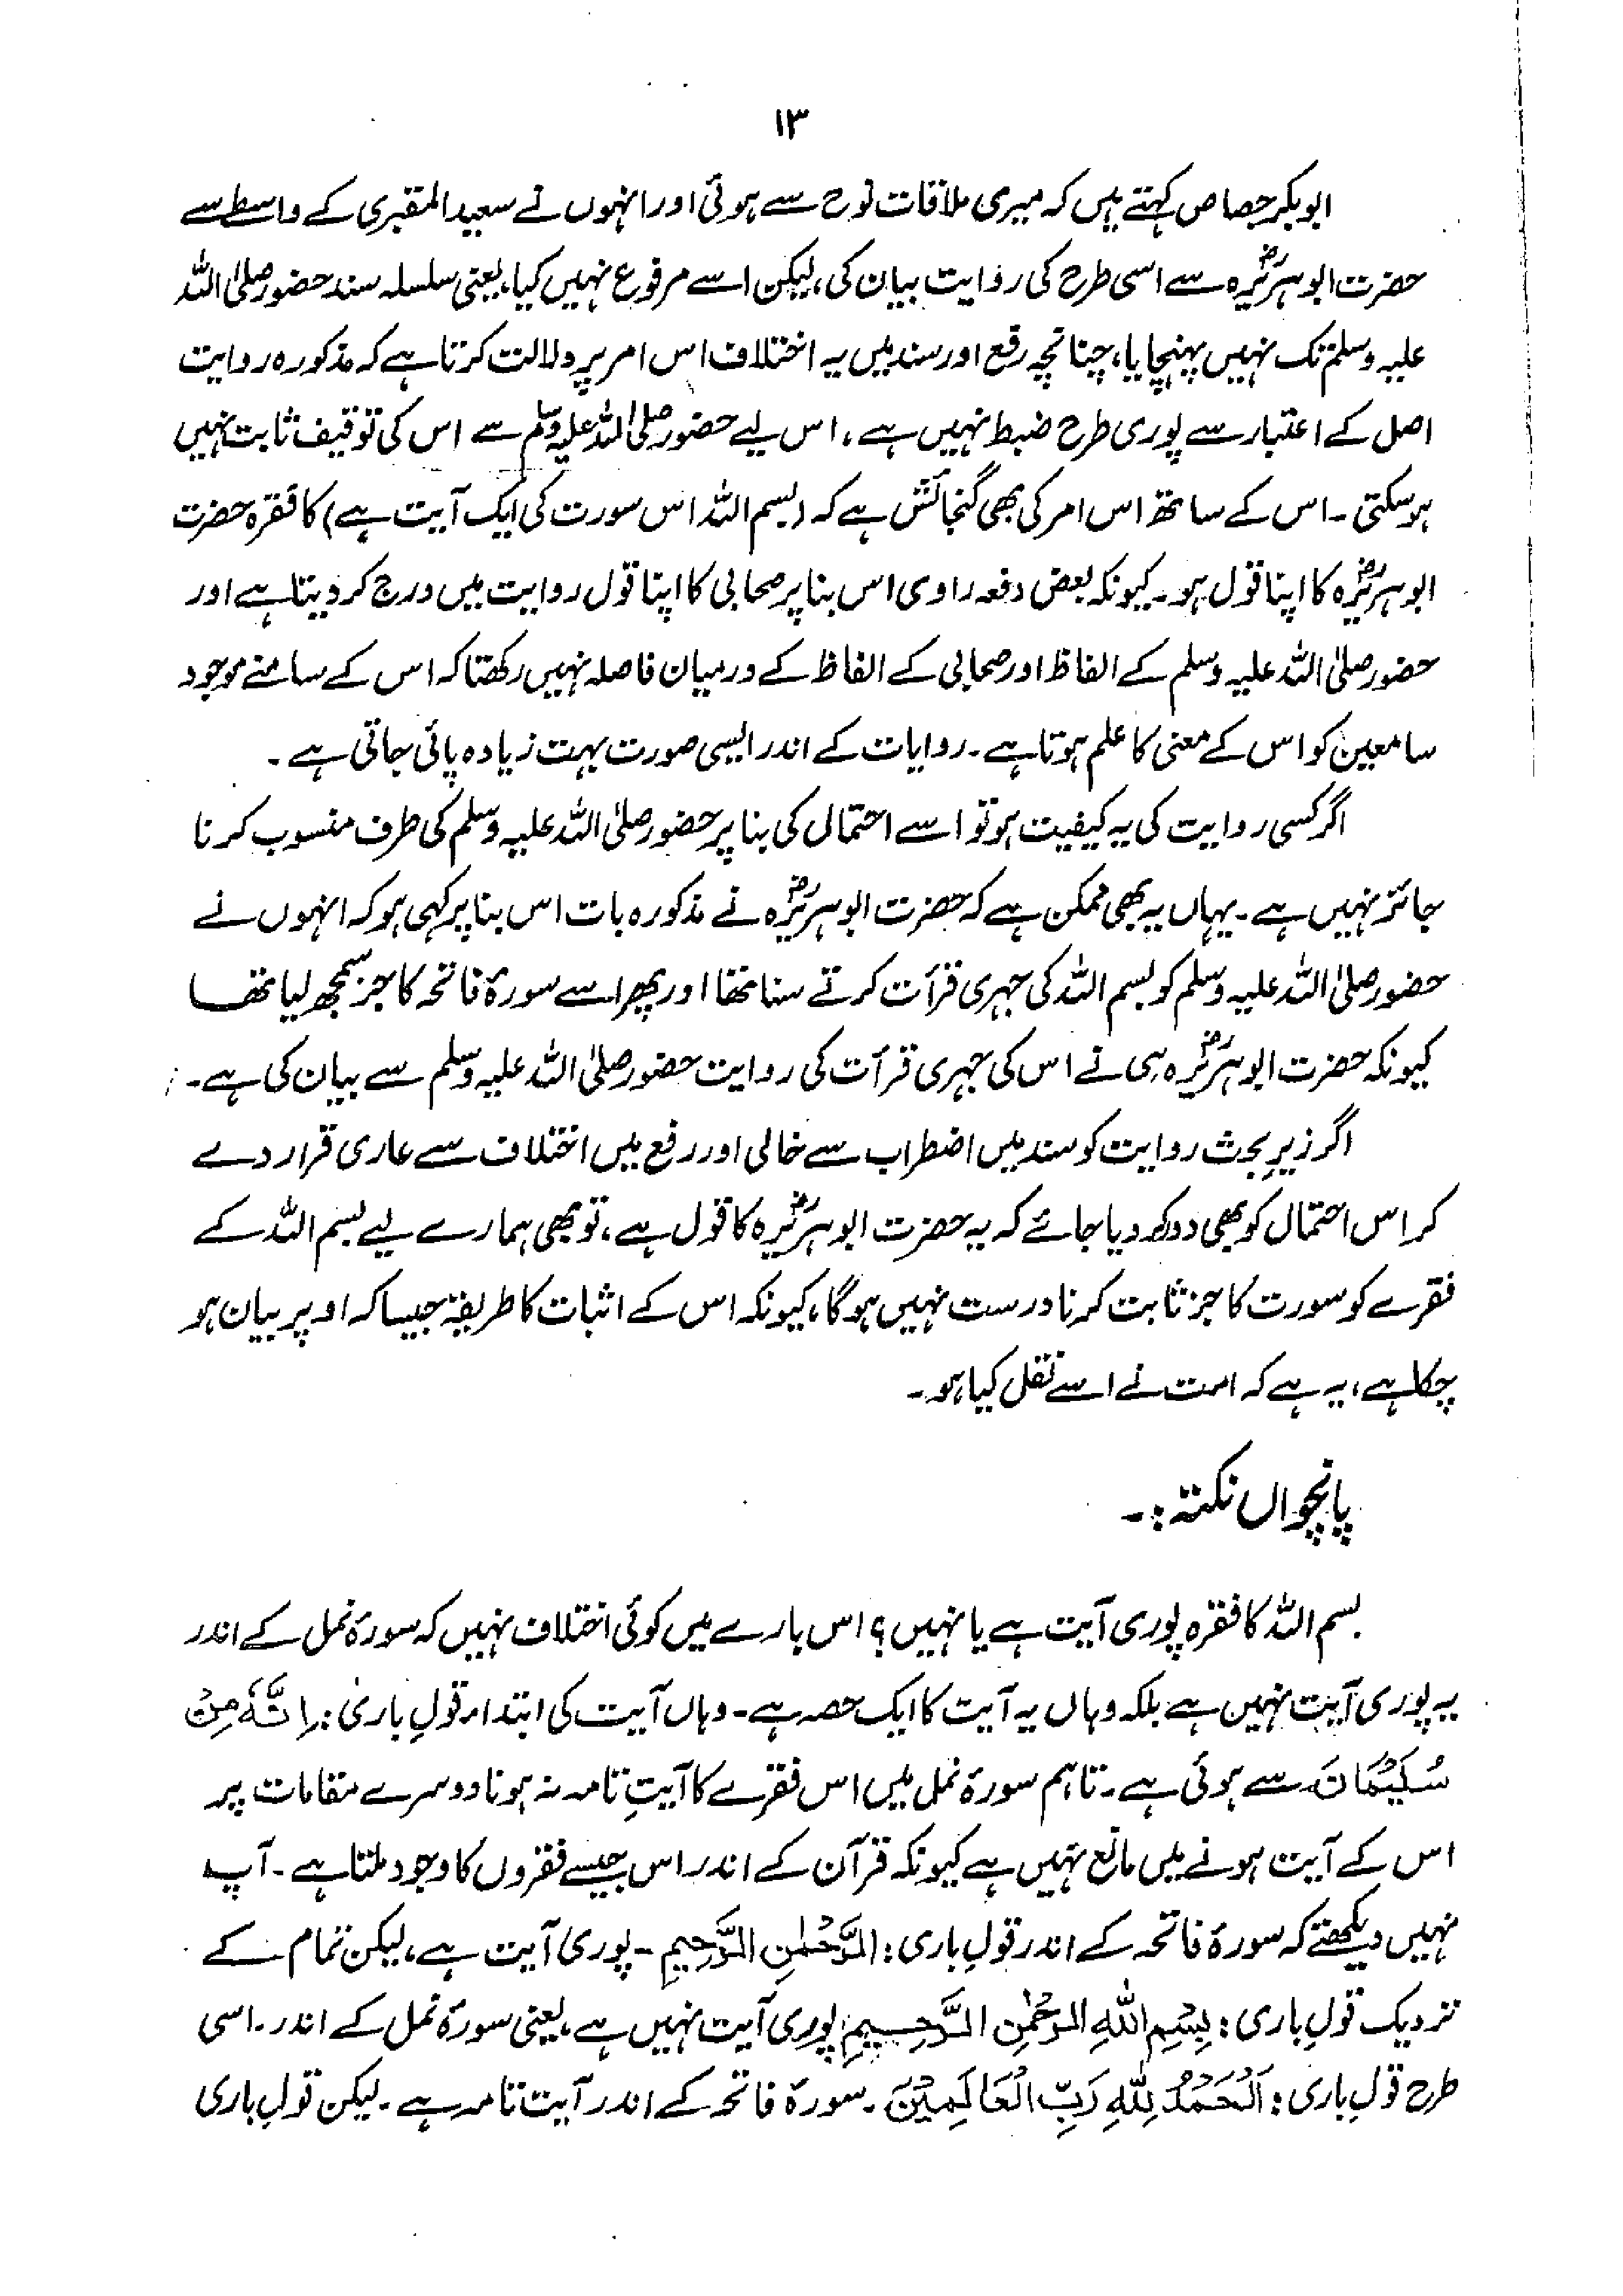 ۱۳
ابوبکر جصاص کہتے ہیں کہ میری ملاقات نوح سے ہوئی اور انہوں نے سعید المقبری کے واسطے سے
حضرت ابوہریرہؓ سے اسی طرح کی روایت بیان کی، لیکن اسے مرفوع نہیں کیا، یعنی سلسلہ سند حضور صلی اللہ
علیہ وسلم تک نہیں پہنچایا، چنانچہ رفع اور سند میں یہ اختلاف اس امر پر دلالت کرتا ہے کہ مذکورہ روایت
اصل کے اعتبار سے پوری طرح ضبط نہیں ہے، اس لیے حضور صلی اللہ علیہ وسلم سے اس کی توقیف ثابت نہیں
ہوسکتی۔ اس کے ساتھ اس امر کی بھی گنجائش ہے کہ (بسم اللہ اس سورت کی ایک آیت ہے) کا فقرہ حضرت
ابوہریرہؓ کا اپنا قول ہو۔ کیونکہ بعض دفعہ راوی اس بنا پر صحابی کا اپنا قول روایت میں درج کر دیتا ہے اور
حضور صلی اللہ علیہ وسلم کے الفاظ اور صحابی کے الفاظ کے درمیان فاصلہ نہیں رکھتا کہ اس کے سامنے موجود
سامعین کو اس کے معنی کا علم ہوتا ہے۔ روایات کے اندر ایسی صورت بہت زیادہ پائی جاتی ہے۔
اگر کسی روایت کی یہ کیفیت ہو تو اسے احتمال کی بنا پر حضور صلی اللہ علیہ وسلم کی طرف منسوب کرنا
جائز نہیں ہے۔ یہاں یہ بھی ممکن ہے کہ حضرت ابوہریرہؓ نے مذکورہ بات اس بنا پر کہی ہو کہ انہوں نے
حضور صلی اللہ علیہ وسلم کو بسم اللہ کی جہری قرأت کرتے سنا تھا اور پھر اسے سورۂ فاتحہ کا جز سمجھ لیا تھا
کیونکہ حضرت ابوہریرہؓ ہی نے اس کی جہری قرأت کی روایت حضور صلی اللہ علیہ وسلم سے بیان کی ہے۔
اگر زیرِ بحث روایت کو سند میں اضطراب سے خالی اور رفع میں اختلاف سے عاری قرار دے
کر اس احتمال کو بھی دور کر دیا جائے کہ یہ حضرت ابوہریرہؓ کا قول ہے، تو بھی ہمارے لیے بسم اللہ کے
فقرے کو سورت کا جز ثابت کرنا درست نہیں ہوگا، کیونکہ اس کے اثبات کا طریقہ جیسا کہ اوپر بیان ہو
چکا ہے، یہ ہے کہ امت نے اسے نقل کیا ہو۔
پانچواں نکتہ:۔
بسم اللہ کا فقرہ پوری آیت ہے یا نہیں؟ اس بارے میں کوئی اختلاف نہیں کہ سورۂ نمل کے اندر
یہ پوری آیت نہیں ہے بلکہ وہاں یہ آیت کا ایک حصہ ہے۔ وہاں آیت کی ابتداء قولِ باری: اِنَّهٗ مِنْ
سُلَيْمَانَ سے ہوئی ہے۔ تاہم سورۂ نمل میں اس فقرے کا آیتِ تامہ نہ ہونا دوسرے مقامات پر
اس کے آیت ہونے میں مانع نہیں ہے کیونکہ قرآن کے اندر اس جیسے فقروں کا وجود ملتا ہے۔ آپ
نہیں دیکھتے کہ سورۂ فاتحہ کے اندر قولِ باری: الرَّحْمٰنِ الرَّحِيمِ۔ پوری آیت ہے، لیکن تمام کے
نزدیک قولِ باری: بِسْمِ اللّٰهِ الرَّحْمٰنِ الرَّحِيمِ پوری آیت نہیں ہے، یعنی سورۂ نمل کے اندر۔ اسی
طرح قولِ باری: اَلْحَمْدُ لِلّٰهِ رَبِّ الْعَالَمِيْنَ۔ سورۂ فاتحہ کے اندر آیت تامہ ہے۔ لیکن قولِ باری